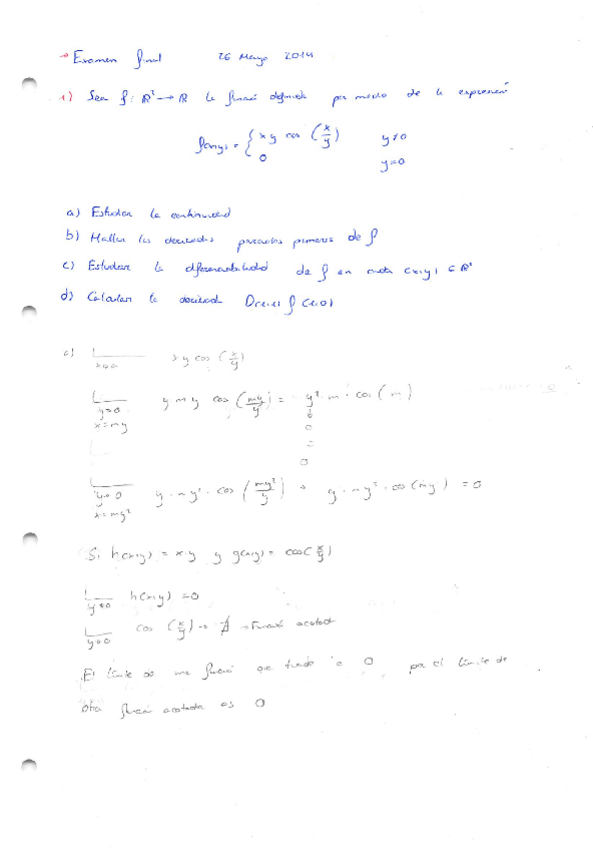 → Examen final 26 Mayo 2014
1) Sea f: R² → R la función definida por medio de la expresión
f(x,y) = { x y cos (x/y) y≠0
0 y=0
a) Estudiar la continuidad
b) Hallar las derivadas parciales primeras de f
c) Estudiar la diferenciabilidad de f en cada (x,y) ∈ R²
d) Calcular la derivada f(1,0)
a) x y cos (x/y)
y→0 y m y cos (my/y) = y² · m · cos (m)
x=my ↓
0
=
0
y→0 y · my² · cos (my²/y) → y · my² · cos (my) = 0
x=my²
Si h(x,y) = x·y y g(x,y) = cos(x/y)
y→0 h(x,y) = 0
y→0 cos (x/y) → ∄ → Función acotada
El límite de una función que tiende a 0 por el límite de
otra función acotada es 0